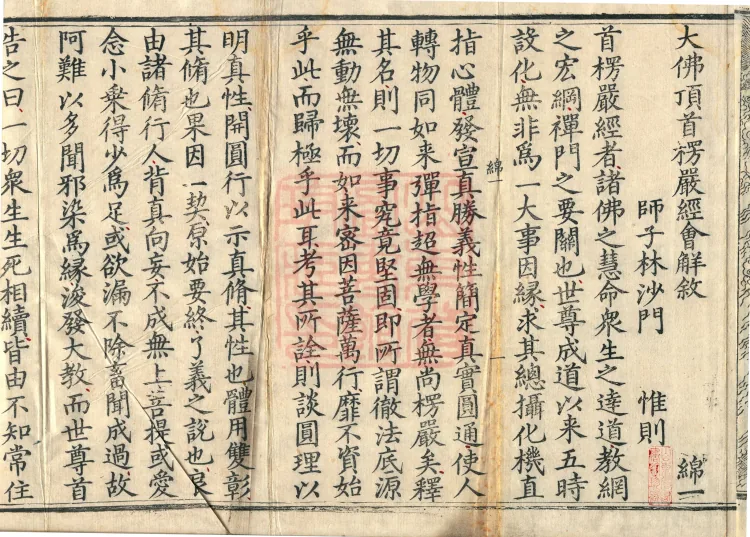 大佛頂首楞嚴經會解敘
綿一
師子林沙門　惟則
首楞嚴經者諸佛之慧命眾生之達道教網
之宏綱禪門之要關也世尊成道以来五時
設化無非爲一大事因縁求其總攝化機直
綿一
指心體發宣真勝義性簡定真實圓通使人
轉物同如来彈指超無學者無尚楞嚴矣釋
其名則一切事究竟堅固即所謂徹法底源
無動無壞而如来密因菩薩萬行靡不資始
乎此而歸極乎此耳考其所詮則談圓理以
明真性開圓行以示真脩其性也體用雙彰
其脩也果因一契原始要終了義之說也良
由諸脩行人背真向妄不成無上菩提或愛
念小乗得少爲足或欲漏不除畜聞成過故
阿難以多聞邪染爲縁浚發大教而世尊首
告之曰一切衆生生死相續皆由不知常住